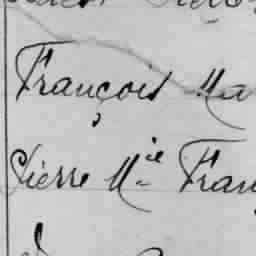 François Ma
Pierre Mie Fran